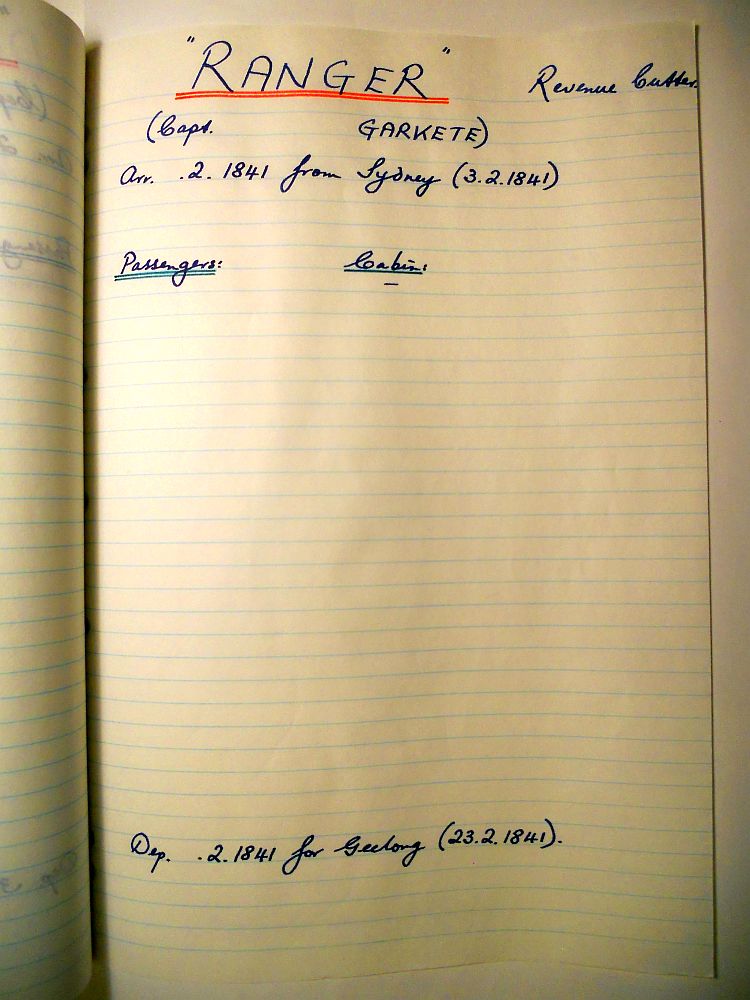 "RANGER" Revenue Cutter.
(Capt. GARKETE)
Arr. .2. 1841 from Sydney (3.2.1841)
Passengers: Cabin:
—
Dep. .2.1841 for Geelong (23.2.1841).